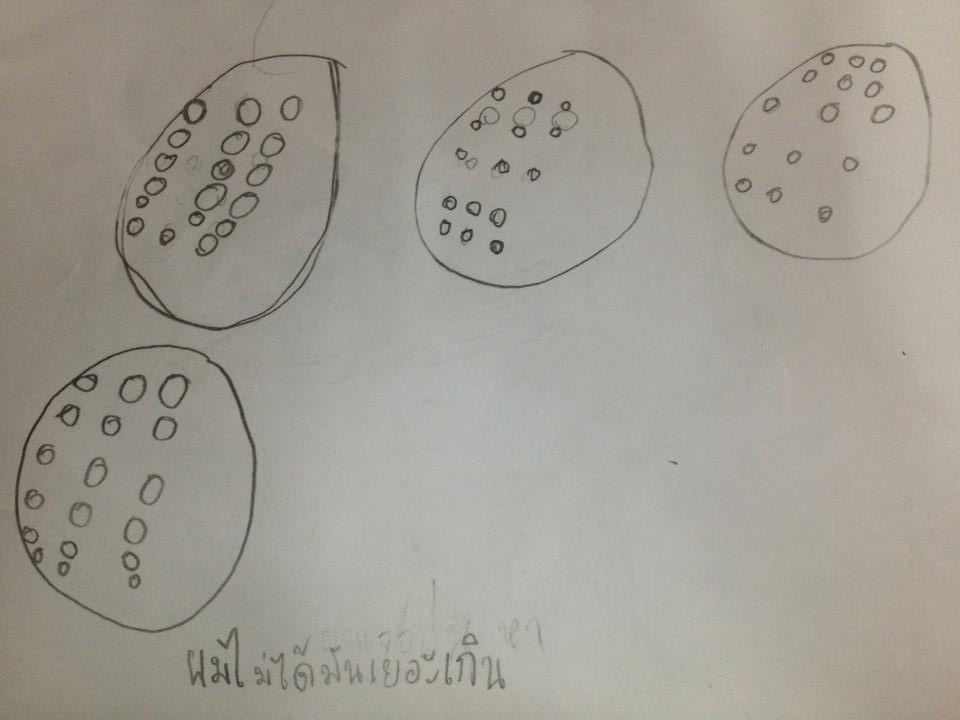 ผมไม่ได้มันเยอะเกิน